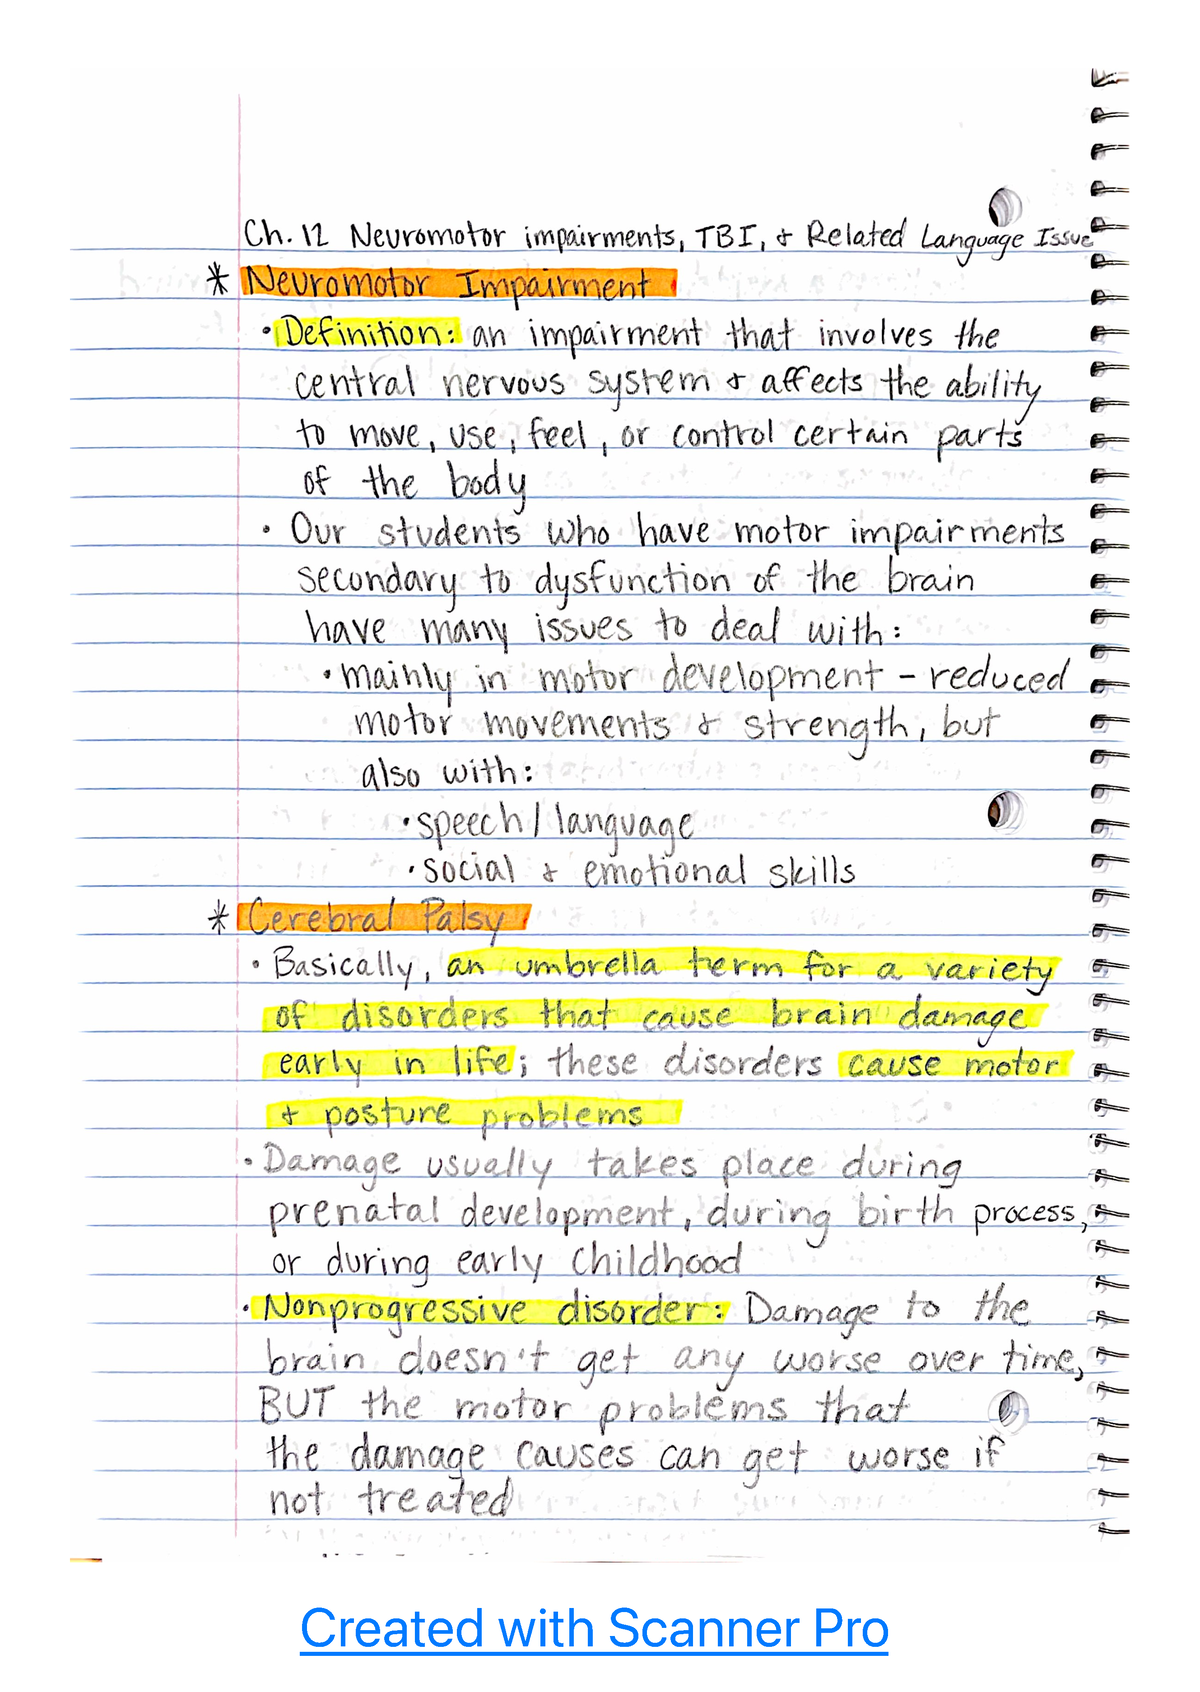 Ch. 12 Neuromotor impairments, TBI, & Related Language Issue
* Neuromotor Impairment
• Definition: an impairment that involves the
central nervous system & affects the ability
to move, use, feel, or control certain parts
of the body
• Our students who have motor impairments
secondary to dysfunction of the brain
have many issues to deal with:
• mainly in motor development - reduced
motor movements & strength, but
also with:
• speech / language
• social & emotional skills
* Cerebral Palsy
• Basically, an umbrella term for a variety
of disorders that cause brain damage
early in life; these disorders cause motor
& posture problems
• Damage usually takes place during
prenatal development, during birth process,
or during early childhood
• Nonprogressive disorder: Damage to the
brain doesn't get any worse over time,
BUT the motor problems that
the damage causes can get worse if
not treated
Created with Scanner Pro